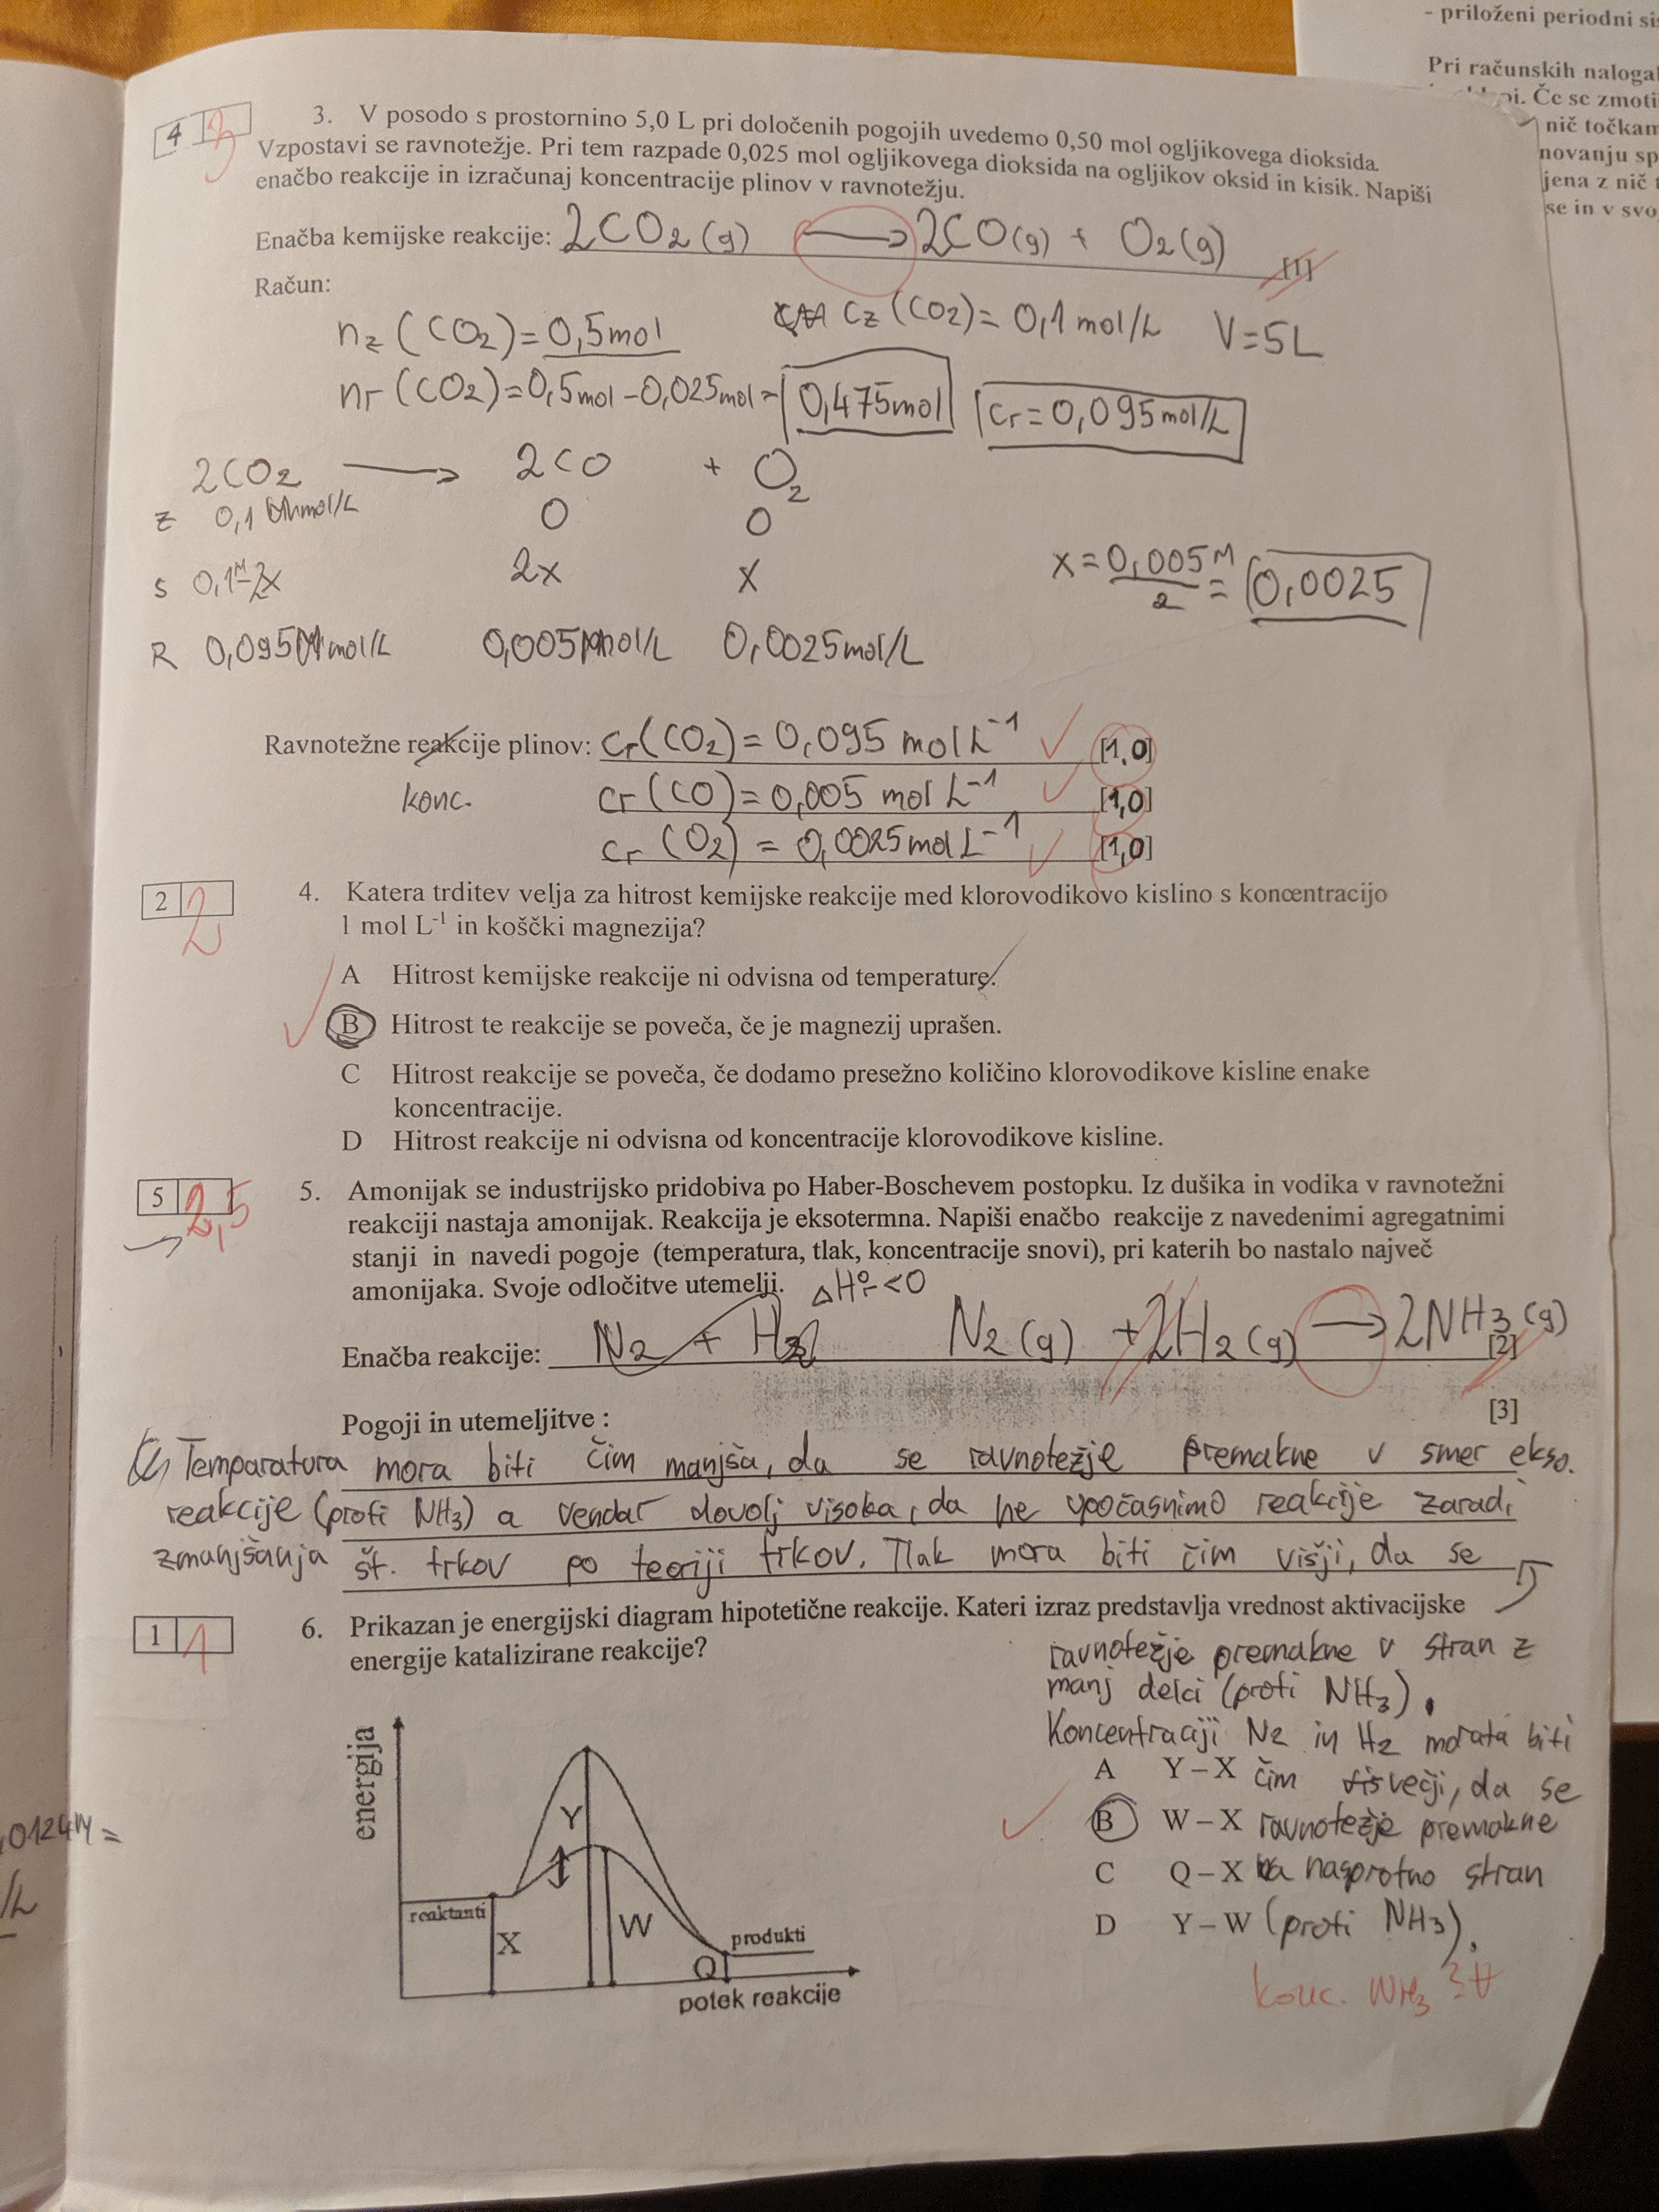 - priloženi periodni si
Pri računskih nalogal
pi. Če se zmoti
nič točkam
novanju sp
jena z nič t
se in v svo
4 3
3. V posodo s prostornino 5,0 L pri določenih pogojih uvedemo 0,50 mol ogljikovega dioksida.
Vzpostavi se ravnotežje. Pri tem razpade 0,025 mol ogljikovega dioksida na ogljikov oksid in kisik. Napiši
enačbo reakcije in izračunaj koncentracije plinov v ravnotežju.
Enačba kemijske reakcije: 2CO2(g) → 2CO(g) + O2(g) [1]
Račun:
nz (CO2) = 0,5mol cz (CO2) = 0,1 mol/L V=5L
nr (CO2) = 0,5mol - 0,025mol = 0,475mol cr = 0,095mol/L
2CO2 → 2CO + O2
z 0,1 mol/L 0 0
s 0,1M-2x 2x x x = 0,005M/2 = 0,0025
R 0,095 mol/L 0,005 mol/L 0,0025mol/L
Ravnotežne reakcije plinov: cr(CO2) = 0,095 mol L⁻¹ ✓ [1,0]
konc. cr(CO) = 0,005 mol L⁻¹ ✓ [1,0]
cr(O2) = 0,0025mol L⁻¹ ✓ [1,0]
2 2
4. Katera trditev velja za hitrost kemijske reakcije med klorovodikovo kislino s koncentracijo
1 mol L⁻¹ in koščki magnezija?
A Hitrost kemijske reakcije ni odvisna od temperature.
B Hitrost te reakcije se poveča, če je magnezij uprašen.
C Hitrost reakcije se poveča, če dodamo presežno količino klorovodikove kisline enake
koncentracije.
D Hitrost reakcije ni odvisna od koncentracije klorovodikove kisline.
5 2,5
5. Amonijak se industrijsko pridobiva po Haber-Boschevem postopku. Iz dušika in vodika v ravnotežni
reakciji nastaja amonijak. Reakcija je eksotermna. Napiši enačbo reakcije z navedenimi agregatnimi
stanji in navedi pogoje (temperatura, tlak, koncentracije snovi), pri katerih bo nastalo največ
amonijaka. Svoje odločitve utemelji. ΔH°r<0
Enačba reakcije: N2 + H2 N2(g) + 2H2(g) → 2NH3(g) [2]
Pogoji in utemeljitve : [3]
Temparatura mora biti čim manjša, da se ravnotežje premakne v smer ekso.
reakcije (proti NH3) a vendar dovolj visoka, da ne upočasnimo reakcije zaradi
zmanjšanja št. trkov po teoriji trkov. Tlak mora biti čim višji, da se
ravnotežje premakne v stran z
manj delci (proti NH3).
Koncentraciji N2 in H2 morata biti
čim večji, da se
ravnotežje premakne
na nasprotno stran
(proti NH3).
konc. NH3 ?
1 1
6. Prikazan je energijski diagram hipotetične reakcije. Kateri izraz predstavlja vrednost aktivacijske
energije katalizirane reakcije?
A Y – X
B W – X
C Q – X
D Y – W
energija
reaktanti
X
Y
W
Q
produkti
potek reakcije
,0124M =
/L